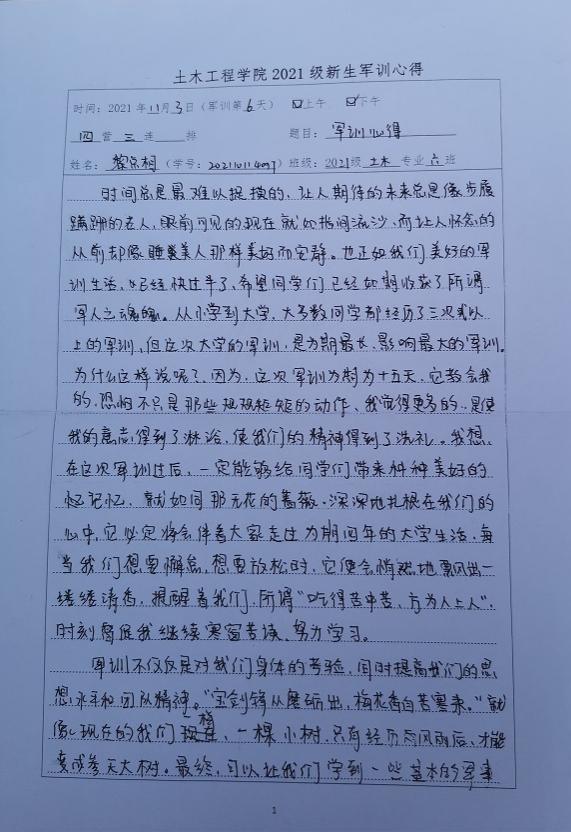 土木工程学院 2021 级新生军训心得
时间：2021 年 11 月 3 日（军训第 6 天） ☑上午 ☑下午
四 营 三 连 排 题目：军训心得
姓名： （学号：202110114097）班级：2021级 土木 专业 六 班
时间总是最难以捉摸的，让人期待的未来总是像步履
蹒跚的老人，眼前可见的现在就如指间流沙，而让人怀念的
从前却像睡美人那样美好而安静。也正如我们美好的军
训生活，已经快过半了，希望同学们已经如期收获了所谓
军人之魂魄。从小学到大学，大多数同学都经历了三次或以
上的军训，但这次大学的军训，是为期最长，影响最大的军训。
为什么这样说呢？因为，这次军训为期为十五天，它教会我
的，恐怕不只是那些规规矩矩的动作，我觉得更多的，是使
我的意志得到了淋浴，使我们的精神得到了洗礼。我想，
在这次军训过后，一定能够给同学们带来种种美好的
忆记忆，就如同那无花的蔷薇，深深地扎根在我们的
心中，它必定将会伴着大家走过为期四年的大学生活，每
当我们想要懈怠，想要放松时，它便会悄然地飘出一
缕缕清香，提醒着我们，所谓“吃得苦中苦，方为人上人”，
时刻督促我继续寒窗苦读、努力学习。
军训不仅仅是对我们身体的考验，同时提高我们的思
想水平和团队精神。“宝剑锋从磨砺出，梅花香自苦寒来。”就
像现在的我们一样，一棵小树，只有经历风雨后，才能
变成参天大树。最终，可以让我们学到一些基本的军事
1